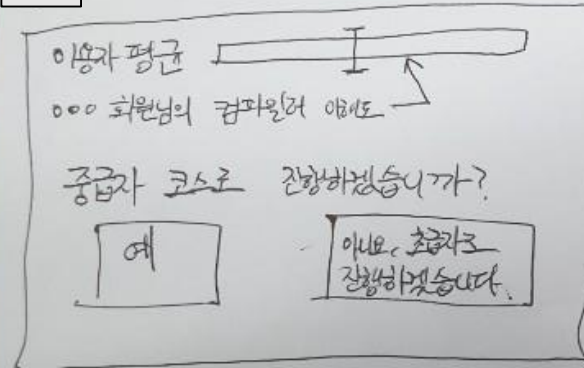 이용자 평균
ooo 회원님의 컴파일러 이해도
중급자 코스로 진행하겠습니까?
예
아니요, 초급자로
진행하겠습니다.